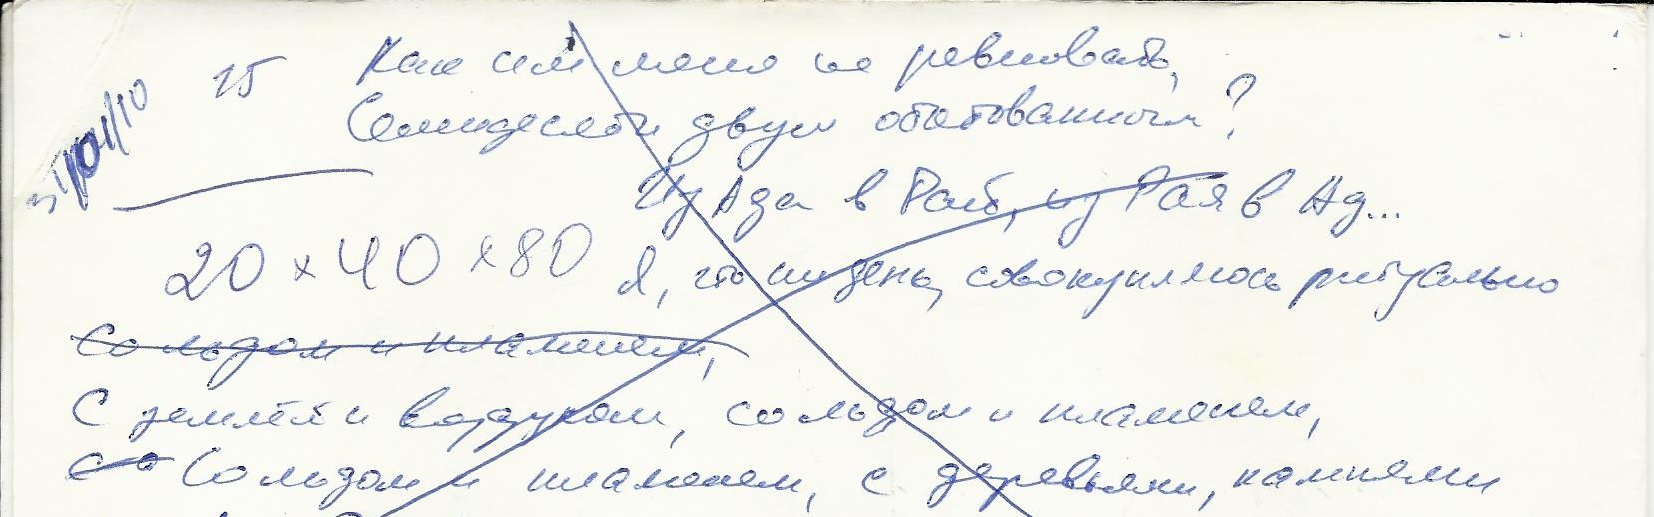 15 Как им меня не ревновать,
Семидесяти двум обетованным?
Из Ада в Рай, из Рая в Ад...
20 x 40 x 80 Я, что ни день, совокупляюсь ритуально
Со льдом и пламенем,
С землёй и воздухом, со льдом и пламенем,
со Со льдом и пламенем, с деревьями, камнями